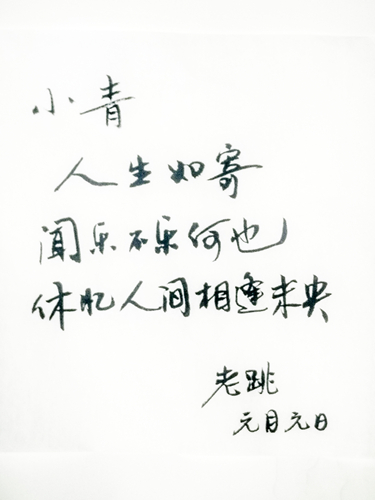 小青
人生如寄
闻乐不乐何也
休忆人间相逢未央
老跳
元月元日